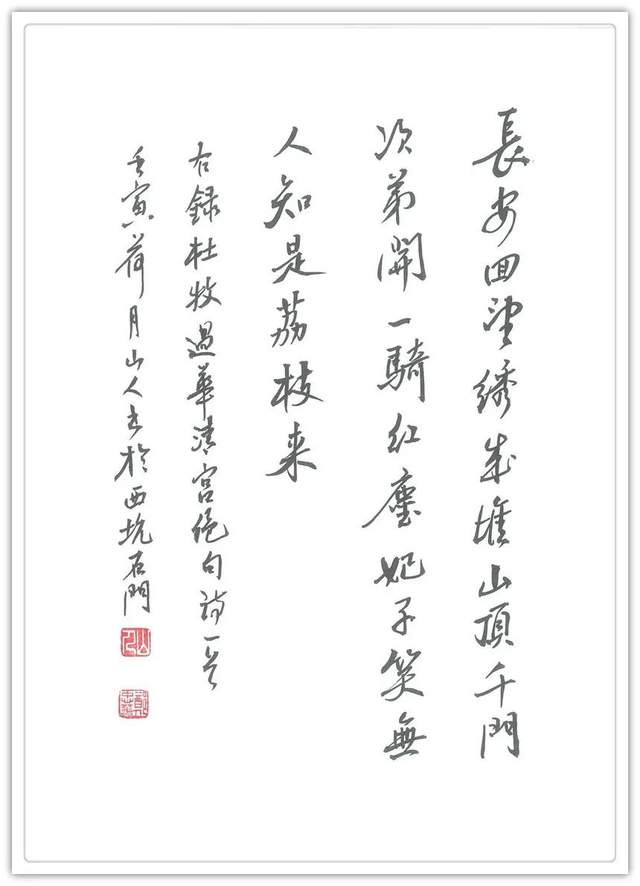 長安回望繡成堆山頂千門
次弟開一騎紅塵妃子笑無
人知是荔枝来
右録杜牧過華清宮絕句詩一首
壬寅荷月山人書於西坑石門
山人